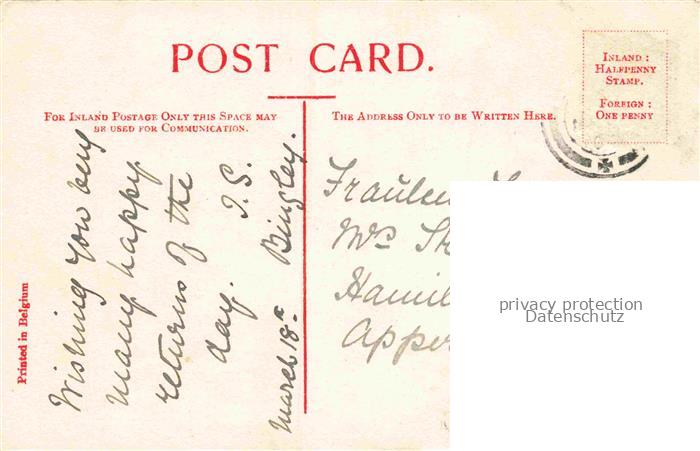 POST CARD.
FOR INLAND POSTAGE ONLY THIS SPACE MAY
BE USED FOR COMMUNICATION.
THE ADDRESS ONLY TO BE WRITTEN HERE.
INLAND :
HALFPENNY
STAMP.
FOREIGN :
ONE PENNY
Wishing you very
many happy
returns of the
day. J.S.
March 18th Bingley.
Fraulein
Mrs
privacy protection
Datenschutz
Printed in Belgium